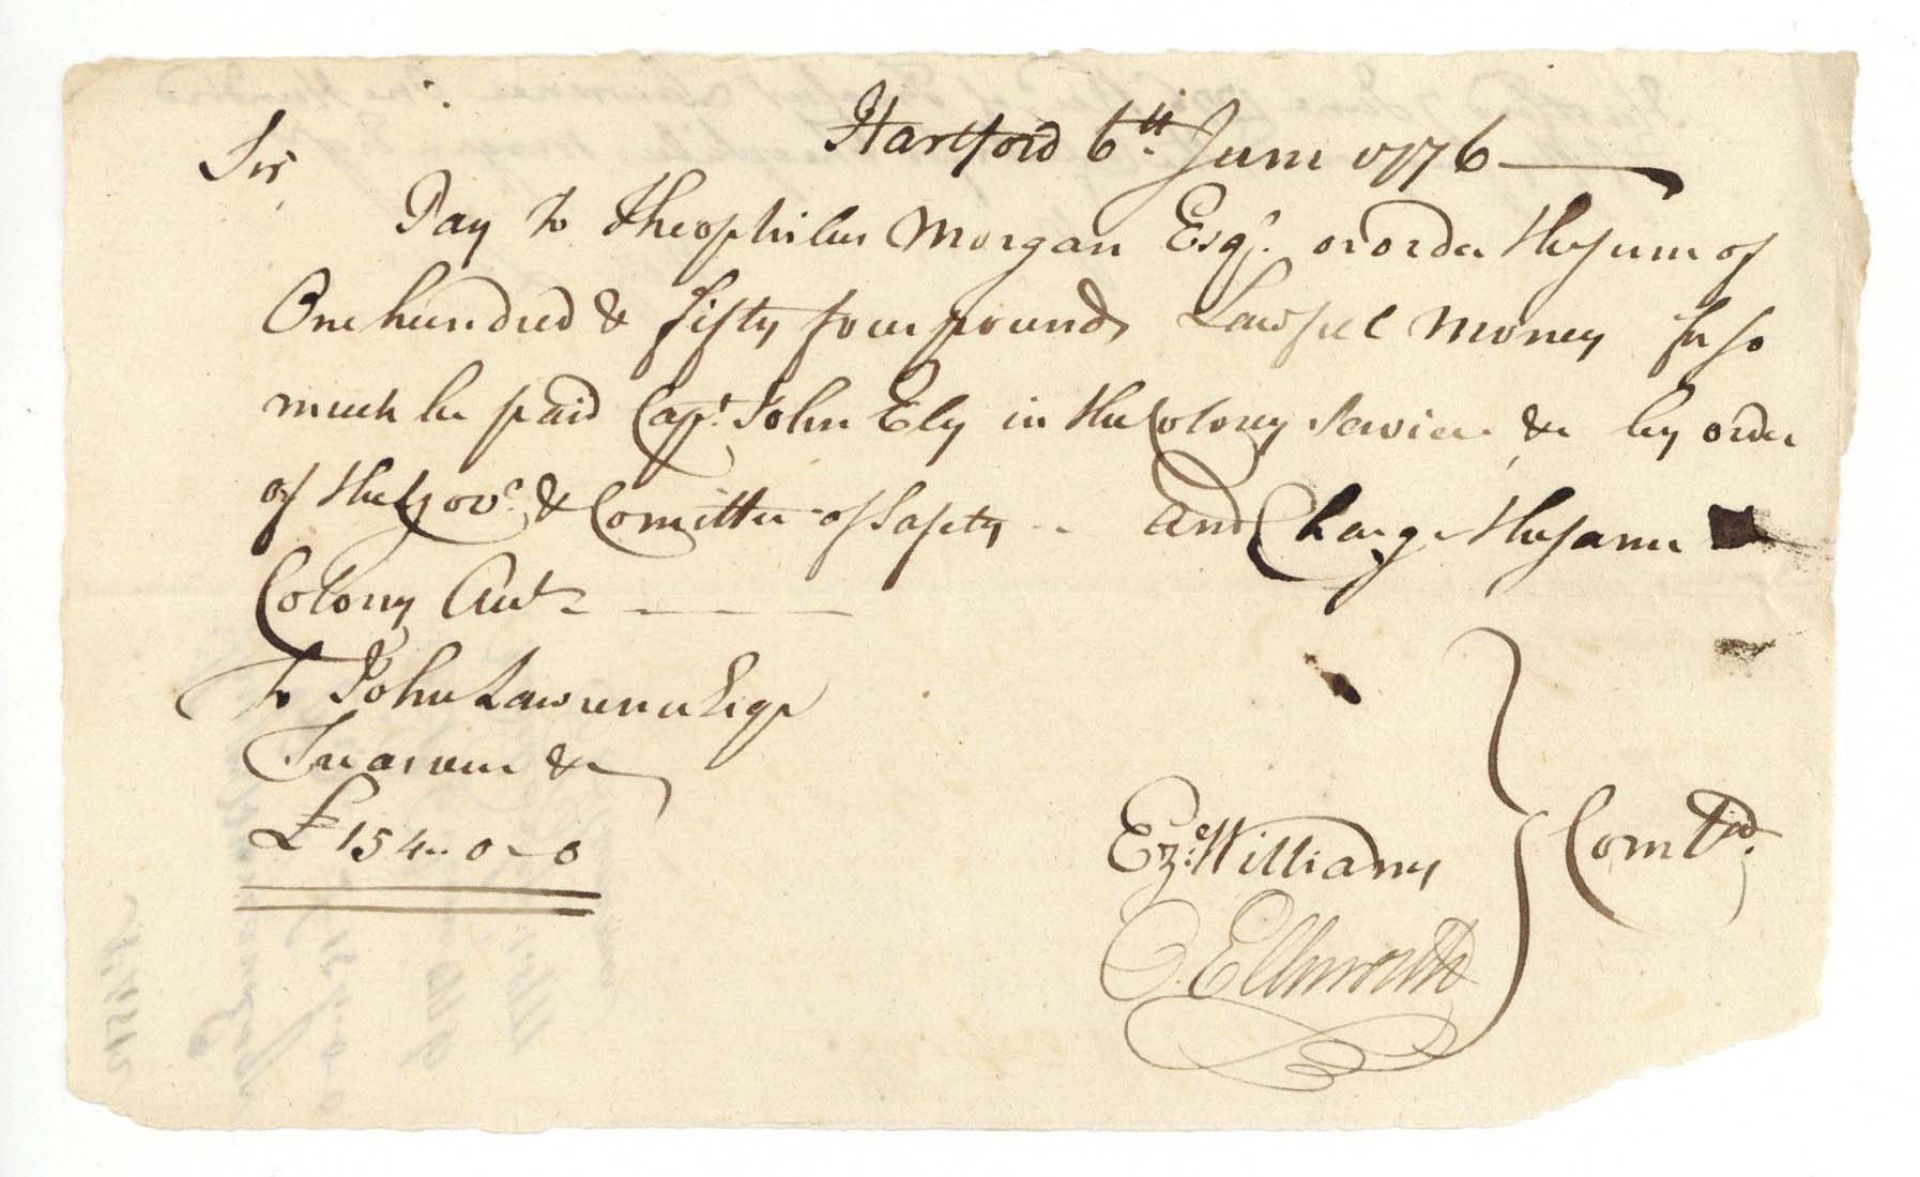 Hartford 6th June 1776
Sir,
Pay to Theophilus Morgan Esqr. or order the sum of
One hundred & fifty four pounds Lawful Money for so
much he paid Capt. John Ely in the Colony Service &c by order
of the Govr. & Comittee of Safety - And Charge the same
Colony Acct.
To John Lawrence Esqr
Treasurer &c
£154..0-0
Ez: Williams
O. Ellsworth
Comtee.